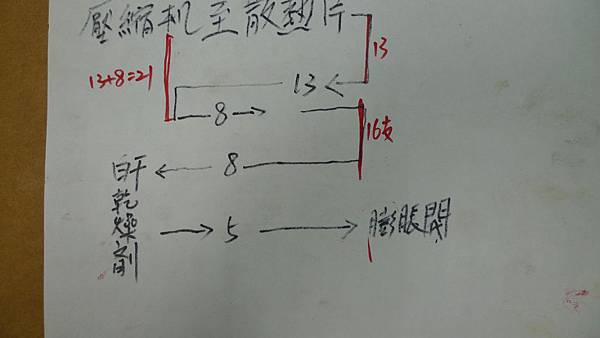 壓縮机至散熱片
13
13+8=21
13
8
16支
8
乾燥剤
5
膨脹閥